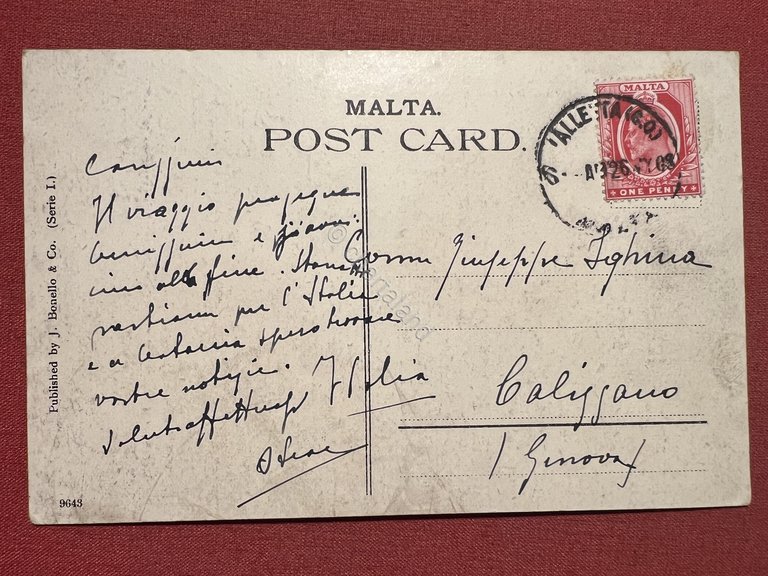 MALTA.
POST CARD.
MALTA
ONE PENNY
VALLETTA (G.O.)
AP 26 08
MALTA
Carissimi
Il viaggio prosegue
benissimo e
alla fine.
partiamo per l'Italia
e a Catania spero trovare
vostre notizie.
Saluti affettuosi
Comm Giuseppe Ighina
Italia
Calizzano
(Genova)
Published by J. Bonello & Co. (Serie I.)
9643